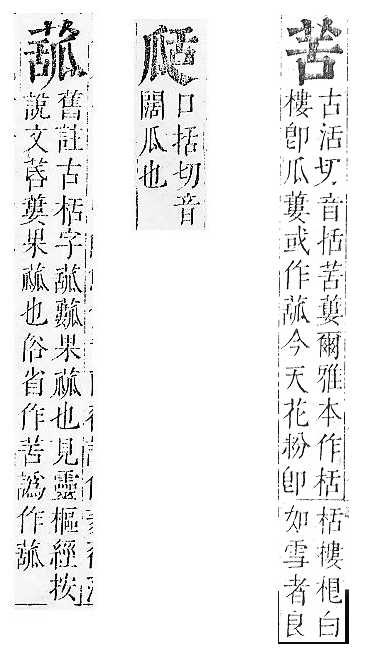 䒷
古活切音括䒷蔞爾雅本作栝栝樓根白
樓卽瓜蔞或作今天花粉卽如雪者良
口括切音
闊瓜也
舊註古栝字果蓏也見靈樞經按
說文蔞果蓏也俗省作䒷譌作